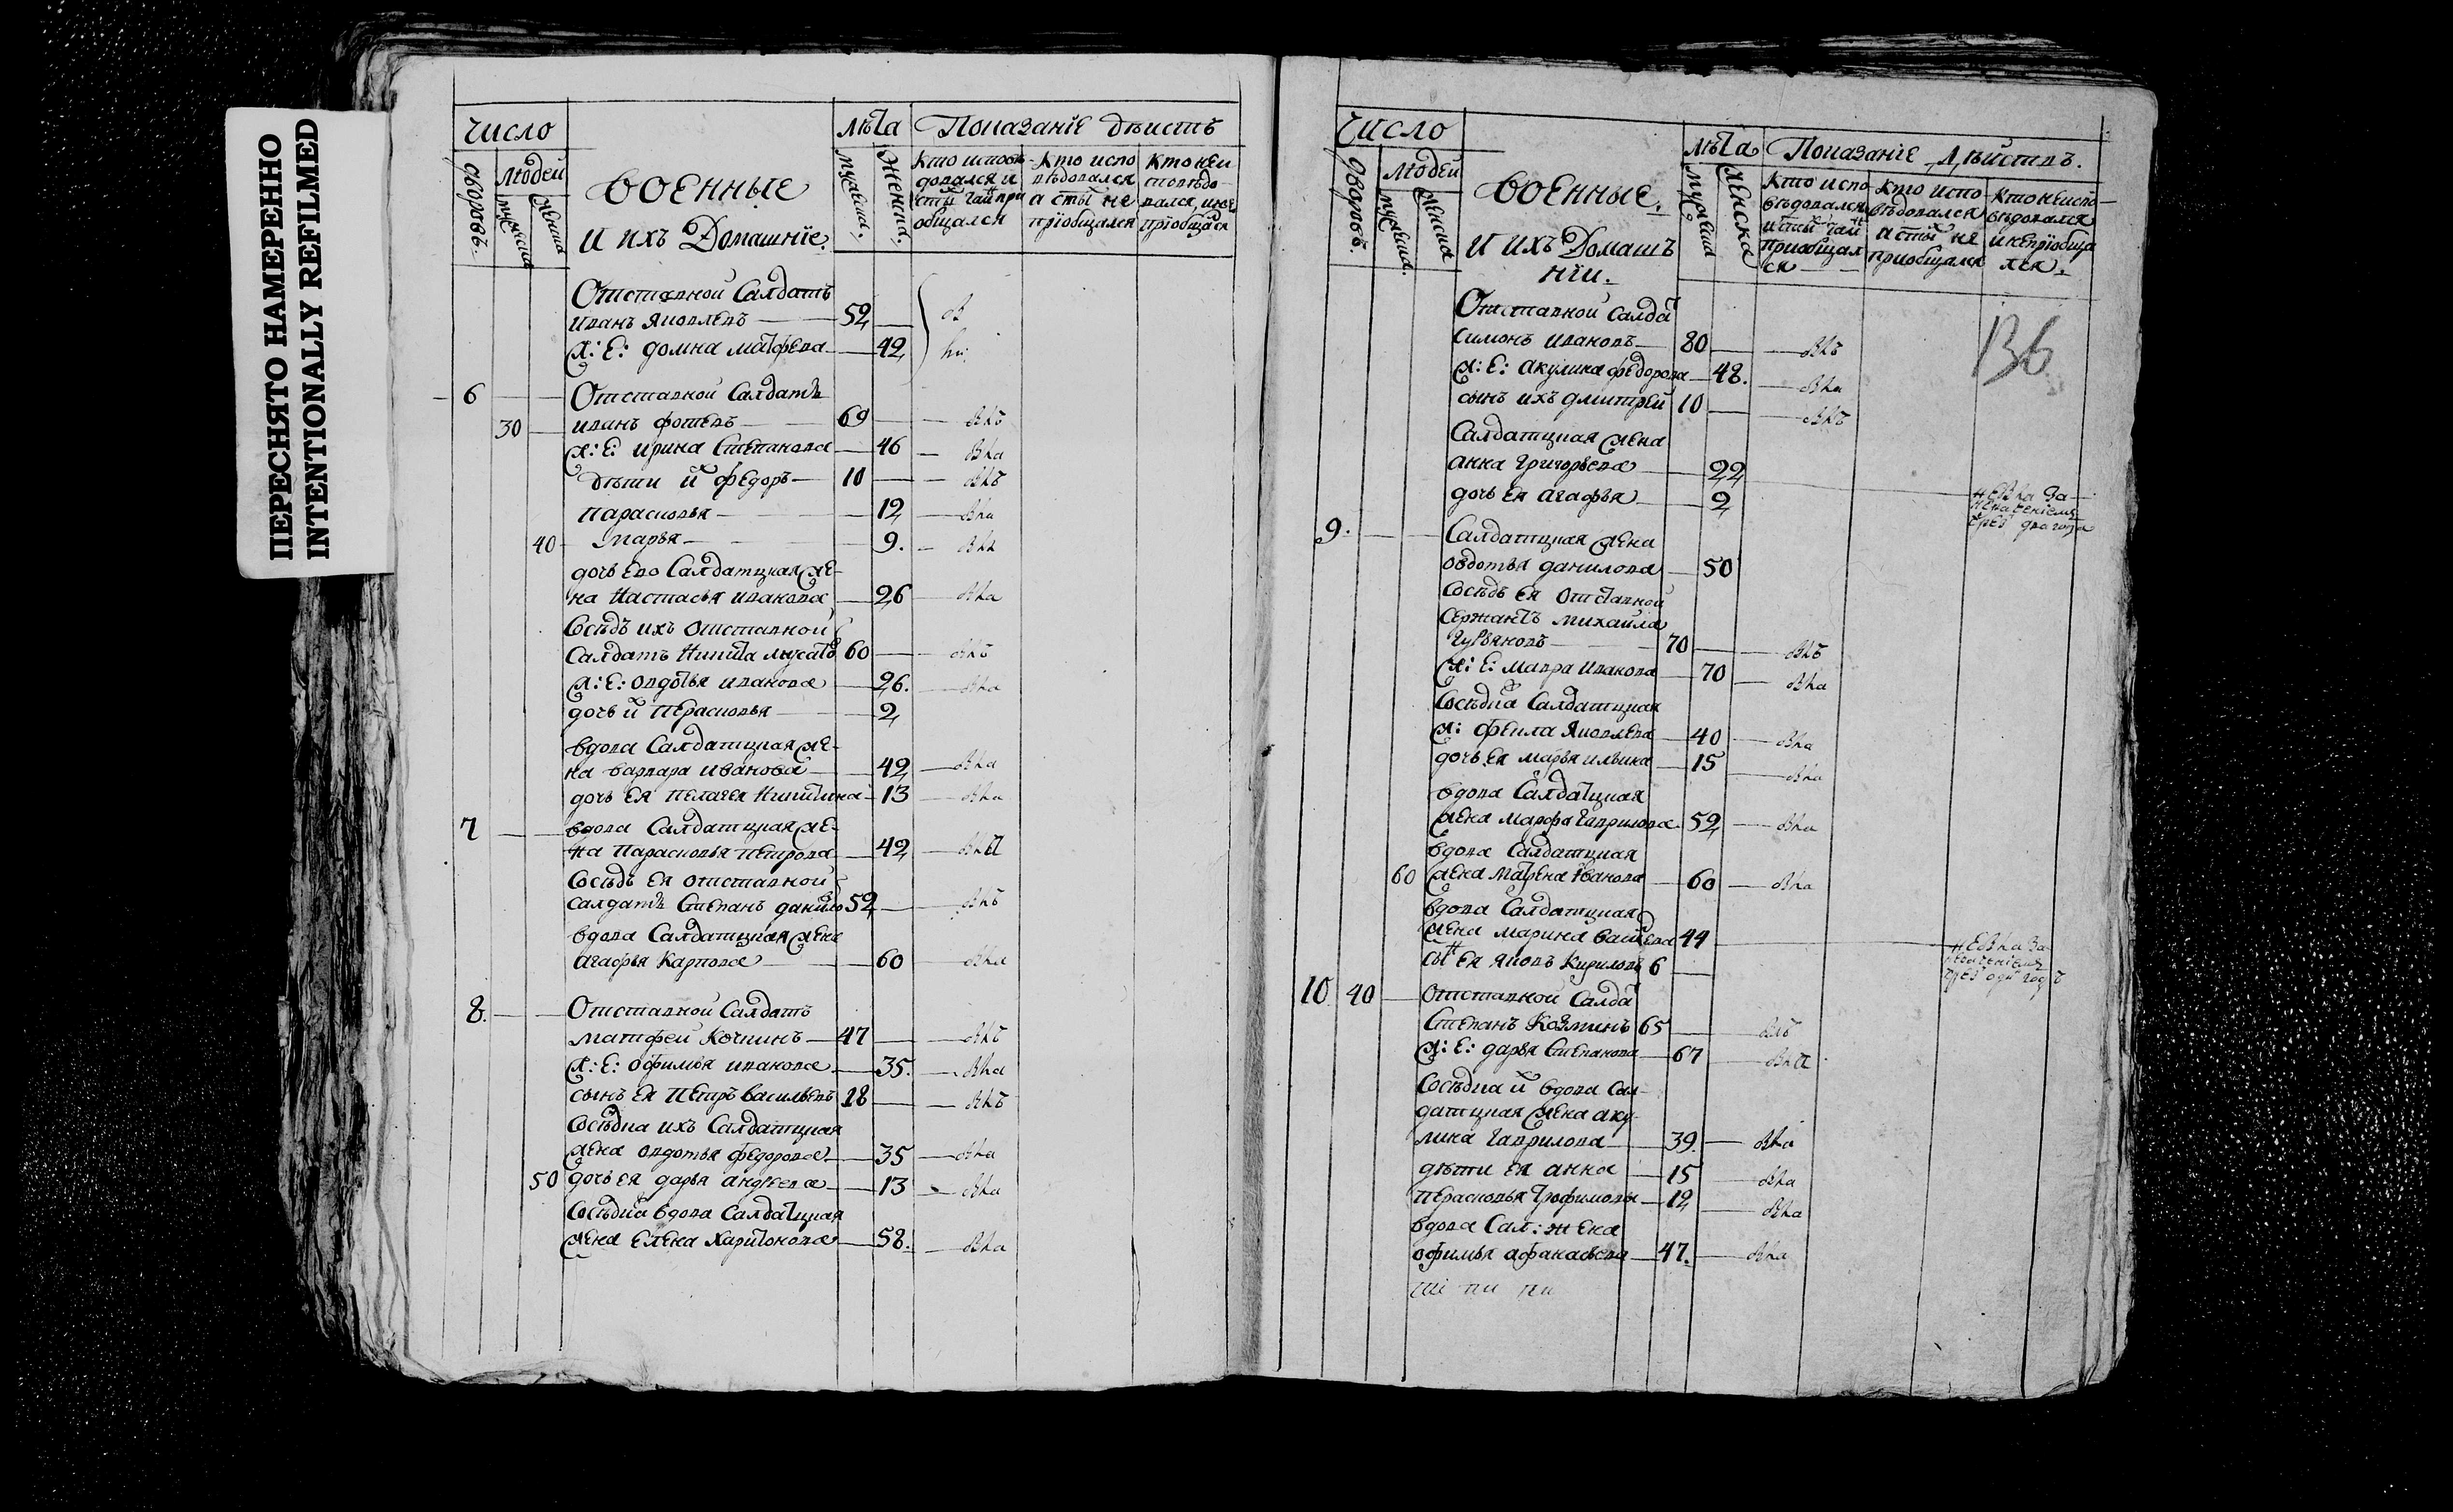 ПЕРЕСНЯТО НАМЕРЕННО
INTENTIONALLY REFILMED
число
дворовъ.
людей
мужеска
женска
военные
и ихъ домашніе.
лѣта
мужеска.
женска.
Показаніе дѣистъ
кто исповѣ
довался и
сты таи при
общался
кто испо
вѣдовался
а сты не
пріобщался
кто неи
сповѣдо-
вался, и не
пріобщался
Отставной Салдатъ
иванъ яковлевъ 52
ж: е: домна матфева 42
6 Отставной Салдатъ
30 иванъ фотевъ 69 вкъ
ж: е: ирина Степанова 46 вка
дѣти и феодоръ 10 вкъ
парасковья 12 вка
40 марья 9. вка
дочь ево Салдатцкая же-
на настасья иванова 26 вка
Сосѣдъ ихъ отставной
Салдатъ никита 60 вкъ
ж: е: овдотья иванова 26. вка
дочь и перасковья 2
вдова Салдатцкая же-
на варвара иванова 42 вка
дочь ея пелагея никитина 13 вка
7 вдова Салдатцкая же-
на парасковья петрова 42 вка
Сосѣдъ ея отставной
салдатъ Степанъ данило 52 вкъ
вдова Салдатцкая жена
агафья карпова 60 вка
8. Отставной Салдатъ
матфеи 47 вкъ
ж: е: офимья иванова 35. вка
сынъ ея петръ васильевъ 18 вкъ
Сосѣдка ихъ Салдатцкая
жена овдотья федорова 35 вка
50 дочь ея дарья андреева 13 вка
Сосѣдка вдова Салдатцкая
жена елена харитонова 58. вка
число
дворовъ.
людей
мужеска.
женска
военные.
и ихъ домашъ
ніи.
лѣта
мужеска
женска
Показаніе дѣиствъ.
кто испо
вѣдовался
и сты таи
приобщал
ся
кто испо-
вѣдовался
а сты не
приобщался
кто неиспо-
вѣдовался
и непріобща
лся.
136
Отставной салда
симонъ ивановъ 80 вкъ
ж: е: акулина федорова 48. вка
сынъ ихъ дмитрей 10 вкъ
Салдатцкая жена
анна григорьева 22
невка за
чрез два года
дочь ея агафья 2
9. Салдатцкая жена
овдотья данилова 50
Сосѣдъ ея отставной
сержантъ михаила
гурьяновъ 70 вкъ
ж: е: мавра иванова 70 вка
Сосѣдка Салдатцкая
ж: фекла яковлева 40 вка
дочь ея марья ильина 15 вка
вдова Салдатцкая
жена марфа гаврилова 52 вка
вдова Салдатцкая
60 жена матрена иванова 60 вка
вдова Салдатцкая
жена марина 44
невка за
чрез оди год
сы ея яковъ кириловъ 6
10 40 отставной Салда
Степанъ козминъ 65 вкъ
ж: е: дарья Степанова 67 вка
Сосѣдка и вдова сал-
датцкая жена аку-
лина гаврилова 39. вка
дѣти ея анна 15 вка
перасковья трофимовы 12 вка
вдова Сал: жена
офимья афанасьева 47. вка